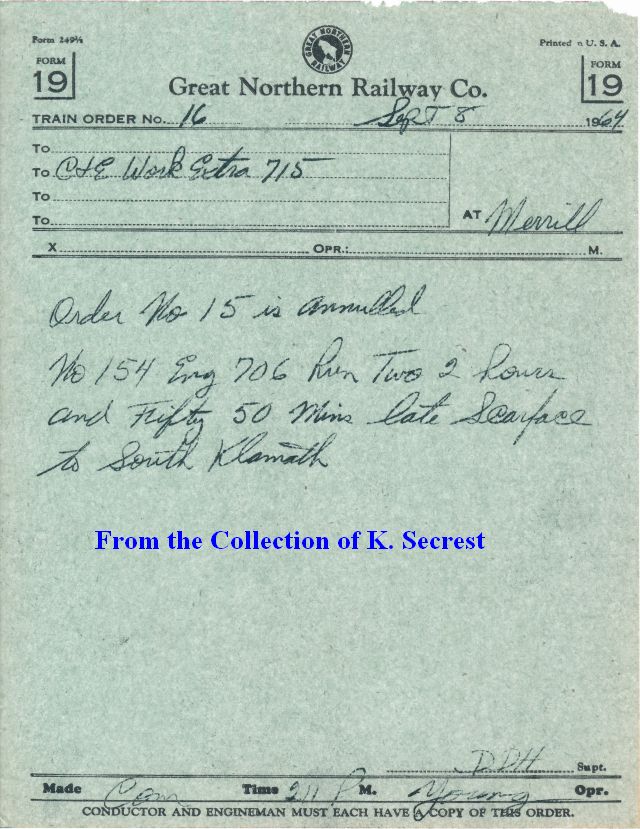 Form 249½
Printed in U. S. A.
FORM
19
GREAT NORTHERN RAILWAY
FORM
19
Great Northern Railway Co.
TRAIN ORDER No. 16 Sept 8 1964
To
To C&E Work Extra 715
To
To
AT Merrill
X OPR.: M.
Order No 15 is annulled
No 154 Eng 706 Run Two 2 hours
and Fifty 50 Mins late Scarface
to South Klamath
From the Collection of K. Secrest
DDH Supt.
Made Com Time 211 P M. Young Opr.
CONDUCTOR AND ENGINEMAN MUST EACH HAVE A COPY OF THIS ORDER.